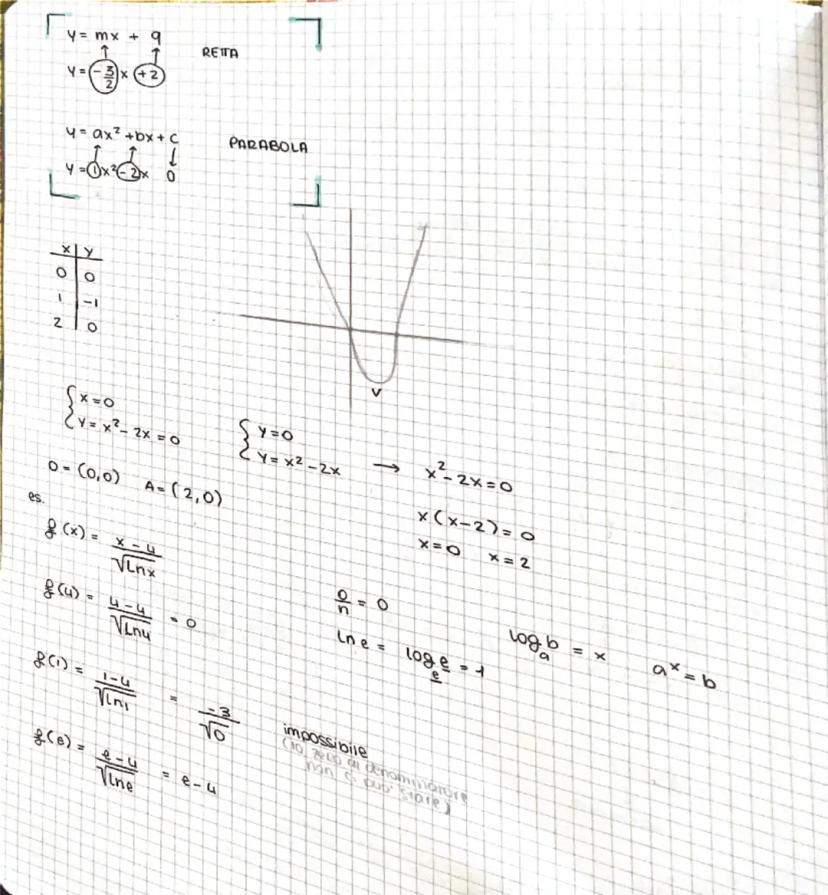 y = mx + q
RETTA
y = -3/2 x +2
y = ax² + bx + c
PARABOLA
y = 1x² -2x 0
x | y
0 | 0
1 | -1
2 | 0
V
{ x=0
{ y = x² - 2x = 0
{ y=0
{ y = x² - 2x → x² - 2x = 0
x(x-2) = 0
x=0 x=2
O = (0,0) A = (2,0)
es.
f(x) = x-4 / √lnx
f(4) = 4-4 / √ln4 = 0
0/n = 0
ln e = log_e e = 1
log_a b = x a^x = b
f(1) = 1-4 / √ln1 = -3 / √0 impossibile
(lo zero al denominatore
non ci può stare)
f(e) = e-4 / √lne = e-4